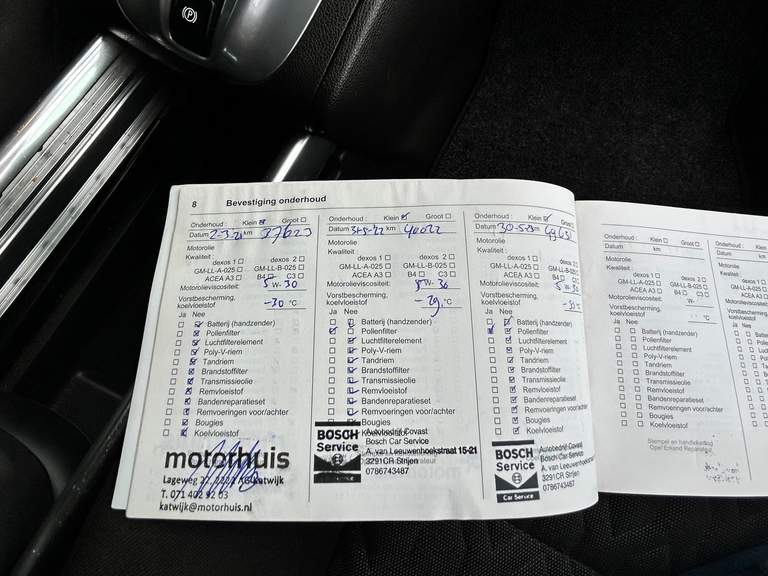 8 Bevestiging onderhoud
Onderhoud : Klein Groot
Datum 2-3-21 km 37623
Motorolie
Kwaliteit :
dexos 1 dexos 2
GM-LL-A-025 GM-LL-B-025
ACEA A3 B4 C3
Motorolieviscositeit: 5 W- 30
Vorstbescherming,
koelvloeistof -30 °C
Ja Nee
Batterij (handzender)
Pollenfilter
Luchtfilterelement
Poly-V-riem
Tandriem
Brandstoffilter
Transmissieolie
Remvloeistof
Bandenreparatieset
Remvoeringen voor/achter
Bougies
Koelvloeistof
motorhuis
Lageweg
Katwijk
katwijk@motorhuis.nl
Onderhoud : Klein Groot
Datum km
Motorolie
Kwaliteit :
dexos 1 dexos 2
GM-LL-A-025 GM-LL-B-025
ACEA A3 B4 C3
Motorolieviscositeit: 5 W- 30
Vorstbescherming,
koelvloeistof -29 °C
Ja Nee
Batterij (handzender)
Pollenfilter
Luchtfilterelement
Poly-V-riem
Tandriem
Brandstoffilter
Transmissieolie
Remvloeistof
Bandenreparatieset
Remvoeringen voor/achter
Bougies
BOSCH
Service
Autobedrijf Covast
Bosch Car Service
A. van Leeuwenhoekstraat 15-21
3291CR Strijen
0786743487
Onderhoud : Klein Groot
Datum 30-5-23 km
Motorolie
Kwaliteit :
dexos 1 dexos 2
GM-LL-A-025 GM-LL-B-025
ACEA A3 B4 C3
Motorolieviscositeit: 5 W- 30
Vorstbescherming,
koelvloeistof °C
Ja Nee
Batterij (handzender)
Pollenfilter
Luchtfilterelement
Poly-V-riem
Tandriem
Brandstoffilter
Transmissieolie
Remvloeistof
Bandenreparatieset
Remvoeringen voor/achter
Bougies
Koelvloeistof
BOSCH
Service
Car Service
Autobedrijf Covast
Bosch Car Service
A. van Leeuwenhoekstraat
3291CR Strijen
0786743487
Onderhoud : Klein Groot
Datum km
Motorolie
Kwaliteit :
dexos 1 dexos 2
GM-LL-A-025 GM-LL-B-025
ACEA A3 B4 C3
Motorolieviscositeit: W-
Vorstbescherming,
koelvloeistof °C
Ja Nee
Batterij (handzender)
Pollenfilter
Luchtfilterelement
Poly-V-riem
Tandriem
Brandstoffilter
Transmissieolie
Remvloeistof
Bandenreparatieset
Remvoeringen voor/achter
Bougies
Koelvloeistof
Stempel en handtekening
Opel Erkend Reparateur